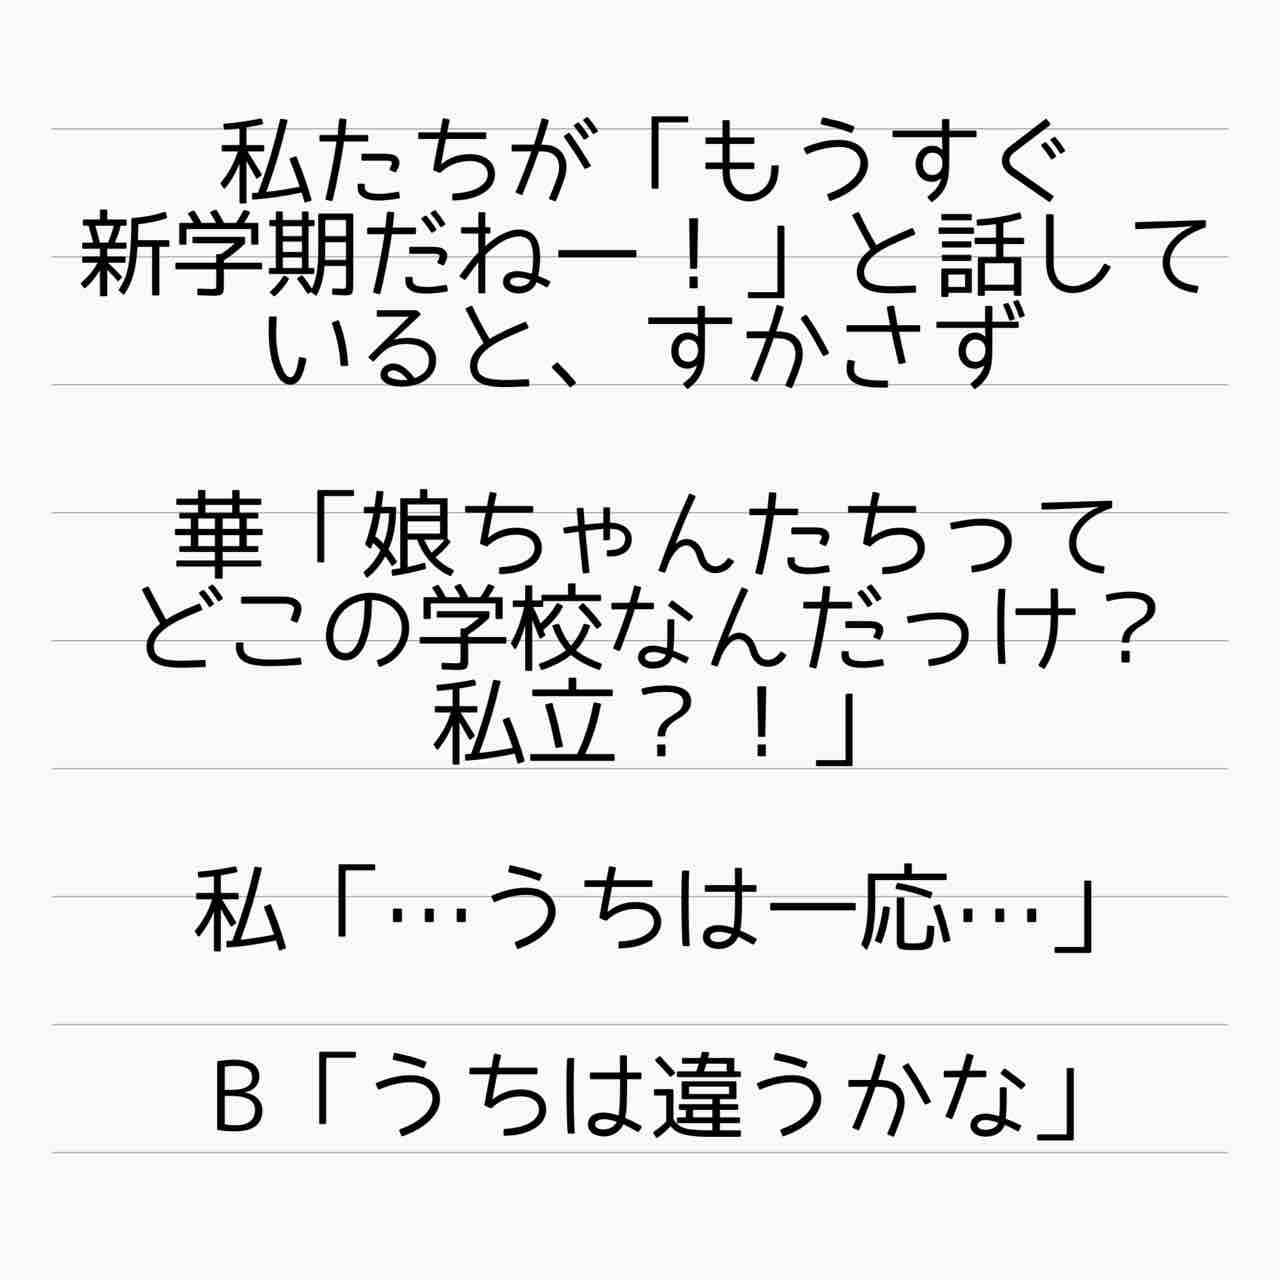 私たちが「もうすぐ
新学期だねー！」と話して
いると、すかさず
華「娘ちゃんたちって
どこの学校なんだっけ？
私立？！」
私「…うちは一応…」
B「うちは違うかな」